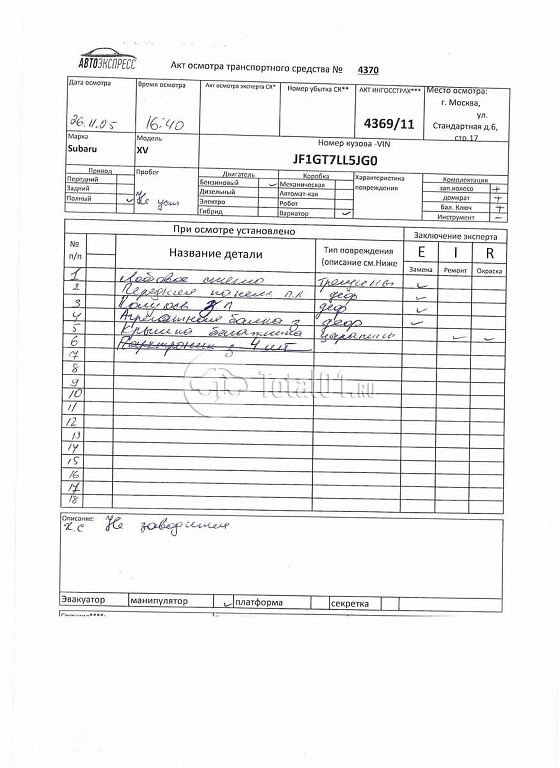 АВТОЭКСПРЕСС
Акт осмотра транспортного средства № 4370
Дата осмотра Время осмотра Акт осмотра эксперта СК* Номер убытка СК** АКТ ИНГОССТРАХ*** Место осмотра:
г. Москва,
ул.
26.11.05 16:40 4369/11 Стандартная д.6,
стр.17
Марка Модель Номер кузова -VIN
Subaru XV JF1GT7LL5JG0
Привод Пробег Двигатель Коробка Характеристика повреждения Комплектация
Передний Бензиновый ✓ Механическая зап.колесо +
Задний Дизельный Автомат-кая домкрат +
Полный ✓ Не уст Электро Робот бал. Ключ +
Гибрид Вариатор ✓ Инструмент –
При осмотре установлено Заключение эксперта
№ п/п Название детали Тип повреждения (описание см.Ниже E I R
Замена Ремонт Окраска
1 Лобовое стекло трещины ✓
2 Передняя панель п.л деф ✓
3 з л деф ✓
4 Агрегатная балка з деф ✓
5 Крышка багажника царапины ✓ ✓
6 Парктроник з 4 шт
7
8
9
10
11
12
13
14
15
16
17
18
Total01.RU
Описание:
х.с Не заводится
Эвакуатор манипулятор ✓ платформа секретка